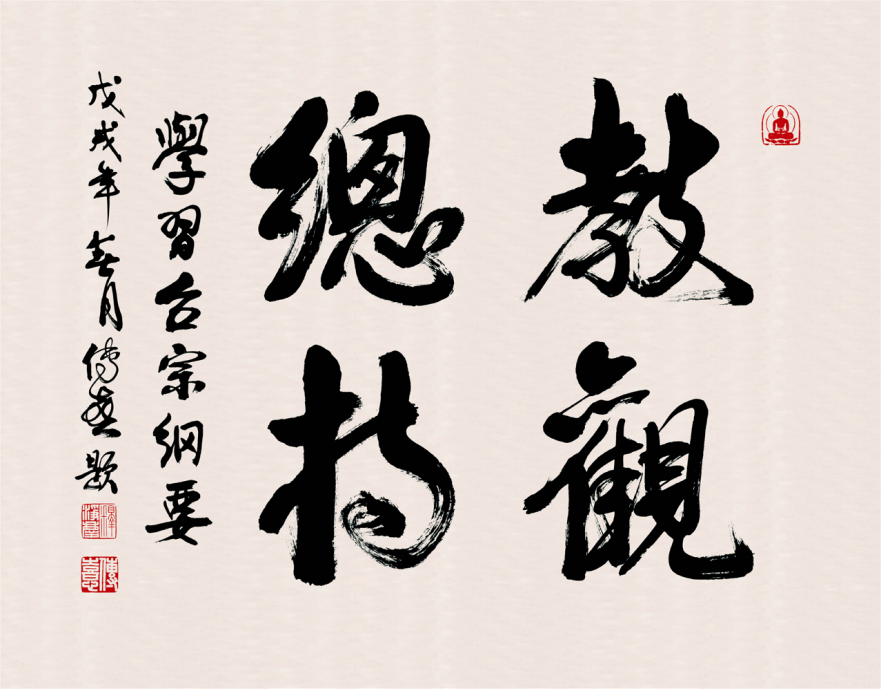 教觀
總持
學習台宗綱要
戊戌年春月傳喜題
傳喜